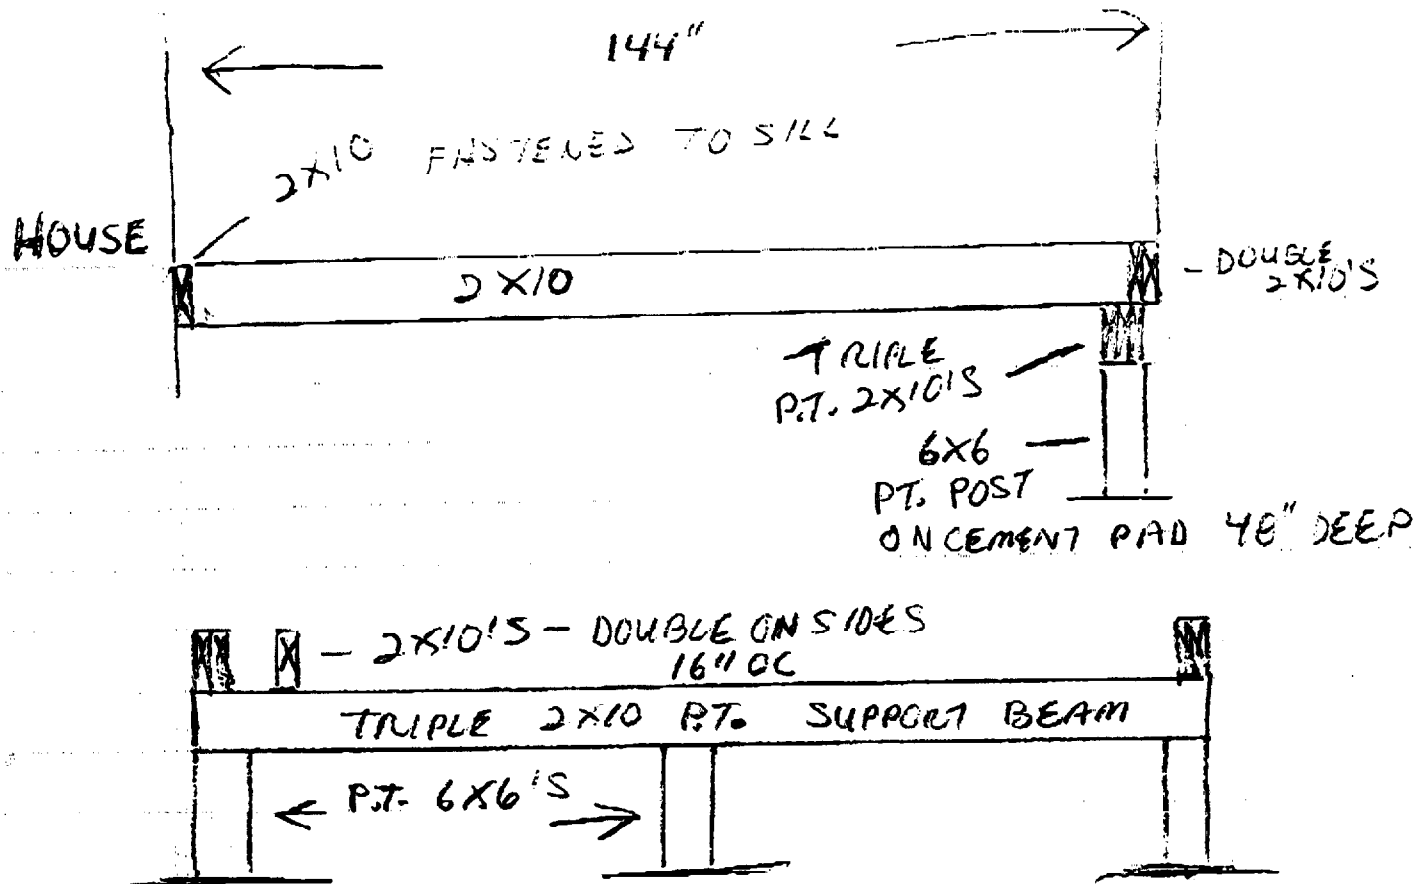 144"
2X10 FASTENED TO SILL
HOUSE
2X10
- DOUBLE
2X10'S
TRIPLE
P.T. 2X10'S
6X6
PT. POST
ON CEMENT PAD 48" DEEP
- 2X10'S - DOUBLE ON SIDES
16" OC
TRIPLE 2X10 P.T. SUPPORT BEAM
P.T. 6X6'S